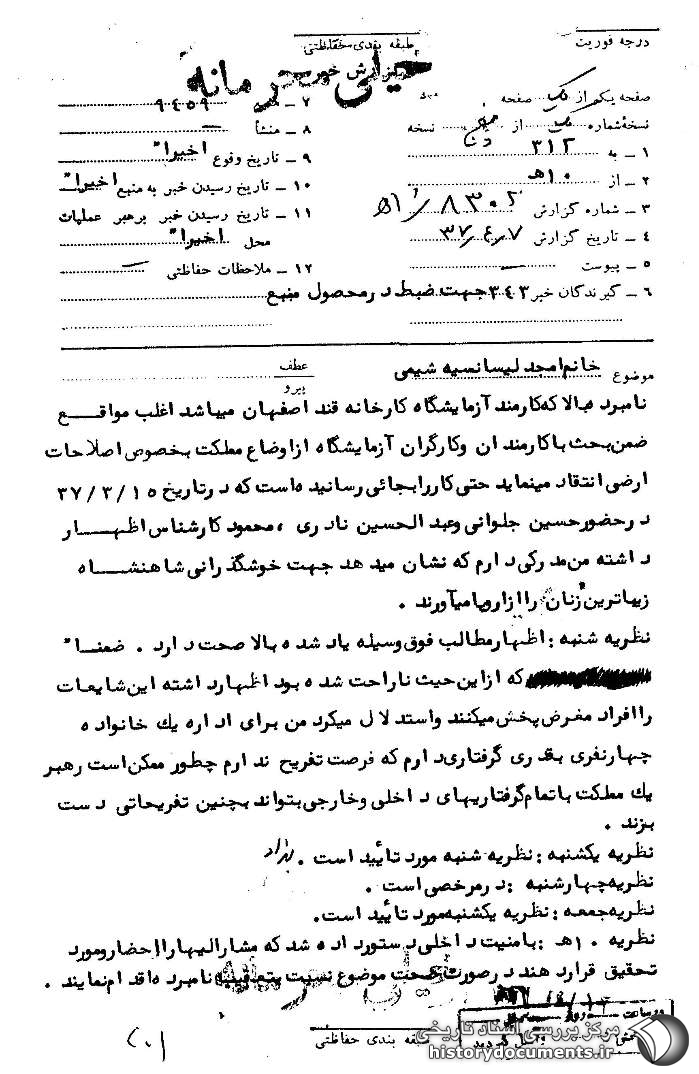 درجه فوریت
طبقه بندی حفاظتی
خیلی محرمانه
گزارش خبر
صفحه یکم از یک صفحه
نسخهٔ شماره یک از نسخه
۱ – به ۳۱۲
۲ – از ۱۰ﻫ
۳ – شماره گزارش ۸۳۰۲/ﻫ۱
۴ – تاریخ گزارش ۳۷/۴/۷
۵ – پیوست –
۶ – گیرندگان خبر ۳۴۳ جهت ضبط در محصول منبع
۷ – ۹۴۵۹
۸ – منشأ –
۹ – تاریخ وقوع اخیرا"
۱۰ – تاریخ رسیدن خبر به منبع اخیرا"
۱۱ – تاریخ رسیدن خبر برهبر عملیات
محل اخیرا"
۱۲ – ملاحظات حفاظتی –
موضوع خانم امجد لیسانسیه شیمی
عطف
پیرو
نامبرده بالا که کارمند آزمایشگاه کارخانه قند اصفهان میباشد اغلب مواقع
ضمن بحث با کارمندان وکارگران آزمایشگاه ازاوضاع مملکت بخصوص اصلاحات
ارضی انتقاد مینماید حتی کاررابجائی رسانیده است که درتاریخ ۳۷/۳/۱۵
درحضورحسین جلوانی وعبدالحسین نادری ، محمود کارشناس اظهار
داشته من مدرکی دارم که نشان میدهد جهت خوشگذرانی شاهنشاه
زیباترین زنان راازاروپا میآورند .
نظریه شنبه : اظهارمطالب فوق وسیله یاد شده بالا صحت دارد . ضمنا"
که ازاین حیث ناراحت شده بود اظهارداشته این شایعات
راافراد مغرض پخش میکنند واستدلال میکرد من برای اداره یک خانواده
چهارنفری بقدری گرفتاری دارم که فرصت تفریح ندارم چطور ممکن است رهبر
یک مملکت باتمام گرفتاریهای داخلی وخارجی بتواند بچنین تفریحاتی دست
بزند .
نظریه یکشنبه : نظریه شنبه مورد تأیید است . بهزاد
نظریه چهارشنبه : درمرخصی است .
نظریه جمعه : نظریه یکشنبه مورد تأیید است.
نظریه ۱۰ﻫ : بامنیت داخلی دستورداده شد که مشارالیهارااحضارومورد
تحقیق قراردهند درصورت صحت موضوع نسبت بتعقیب نامبرده اقدام نمایند .
خیلی محرمانه
طبقه بندی حفاظتی
(۲۰)
مرکز بررسی اسناد تاریخی
historydocuments.ir